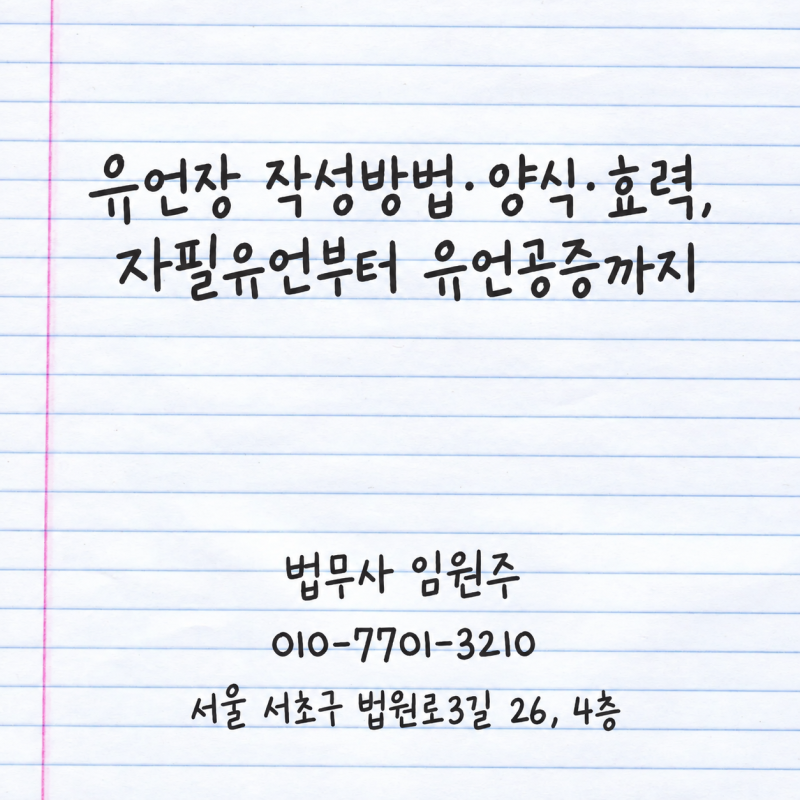 유언장 작성방법·양식·효력,
자필유언부터 유언공증까지
법무사 임원주
010-7701-3210
서울 서초구 법원로3길 26, 4층